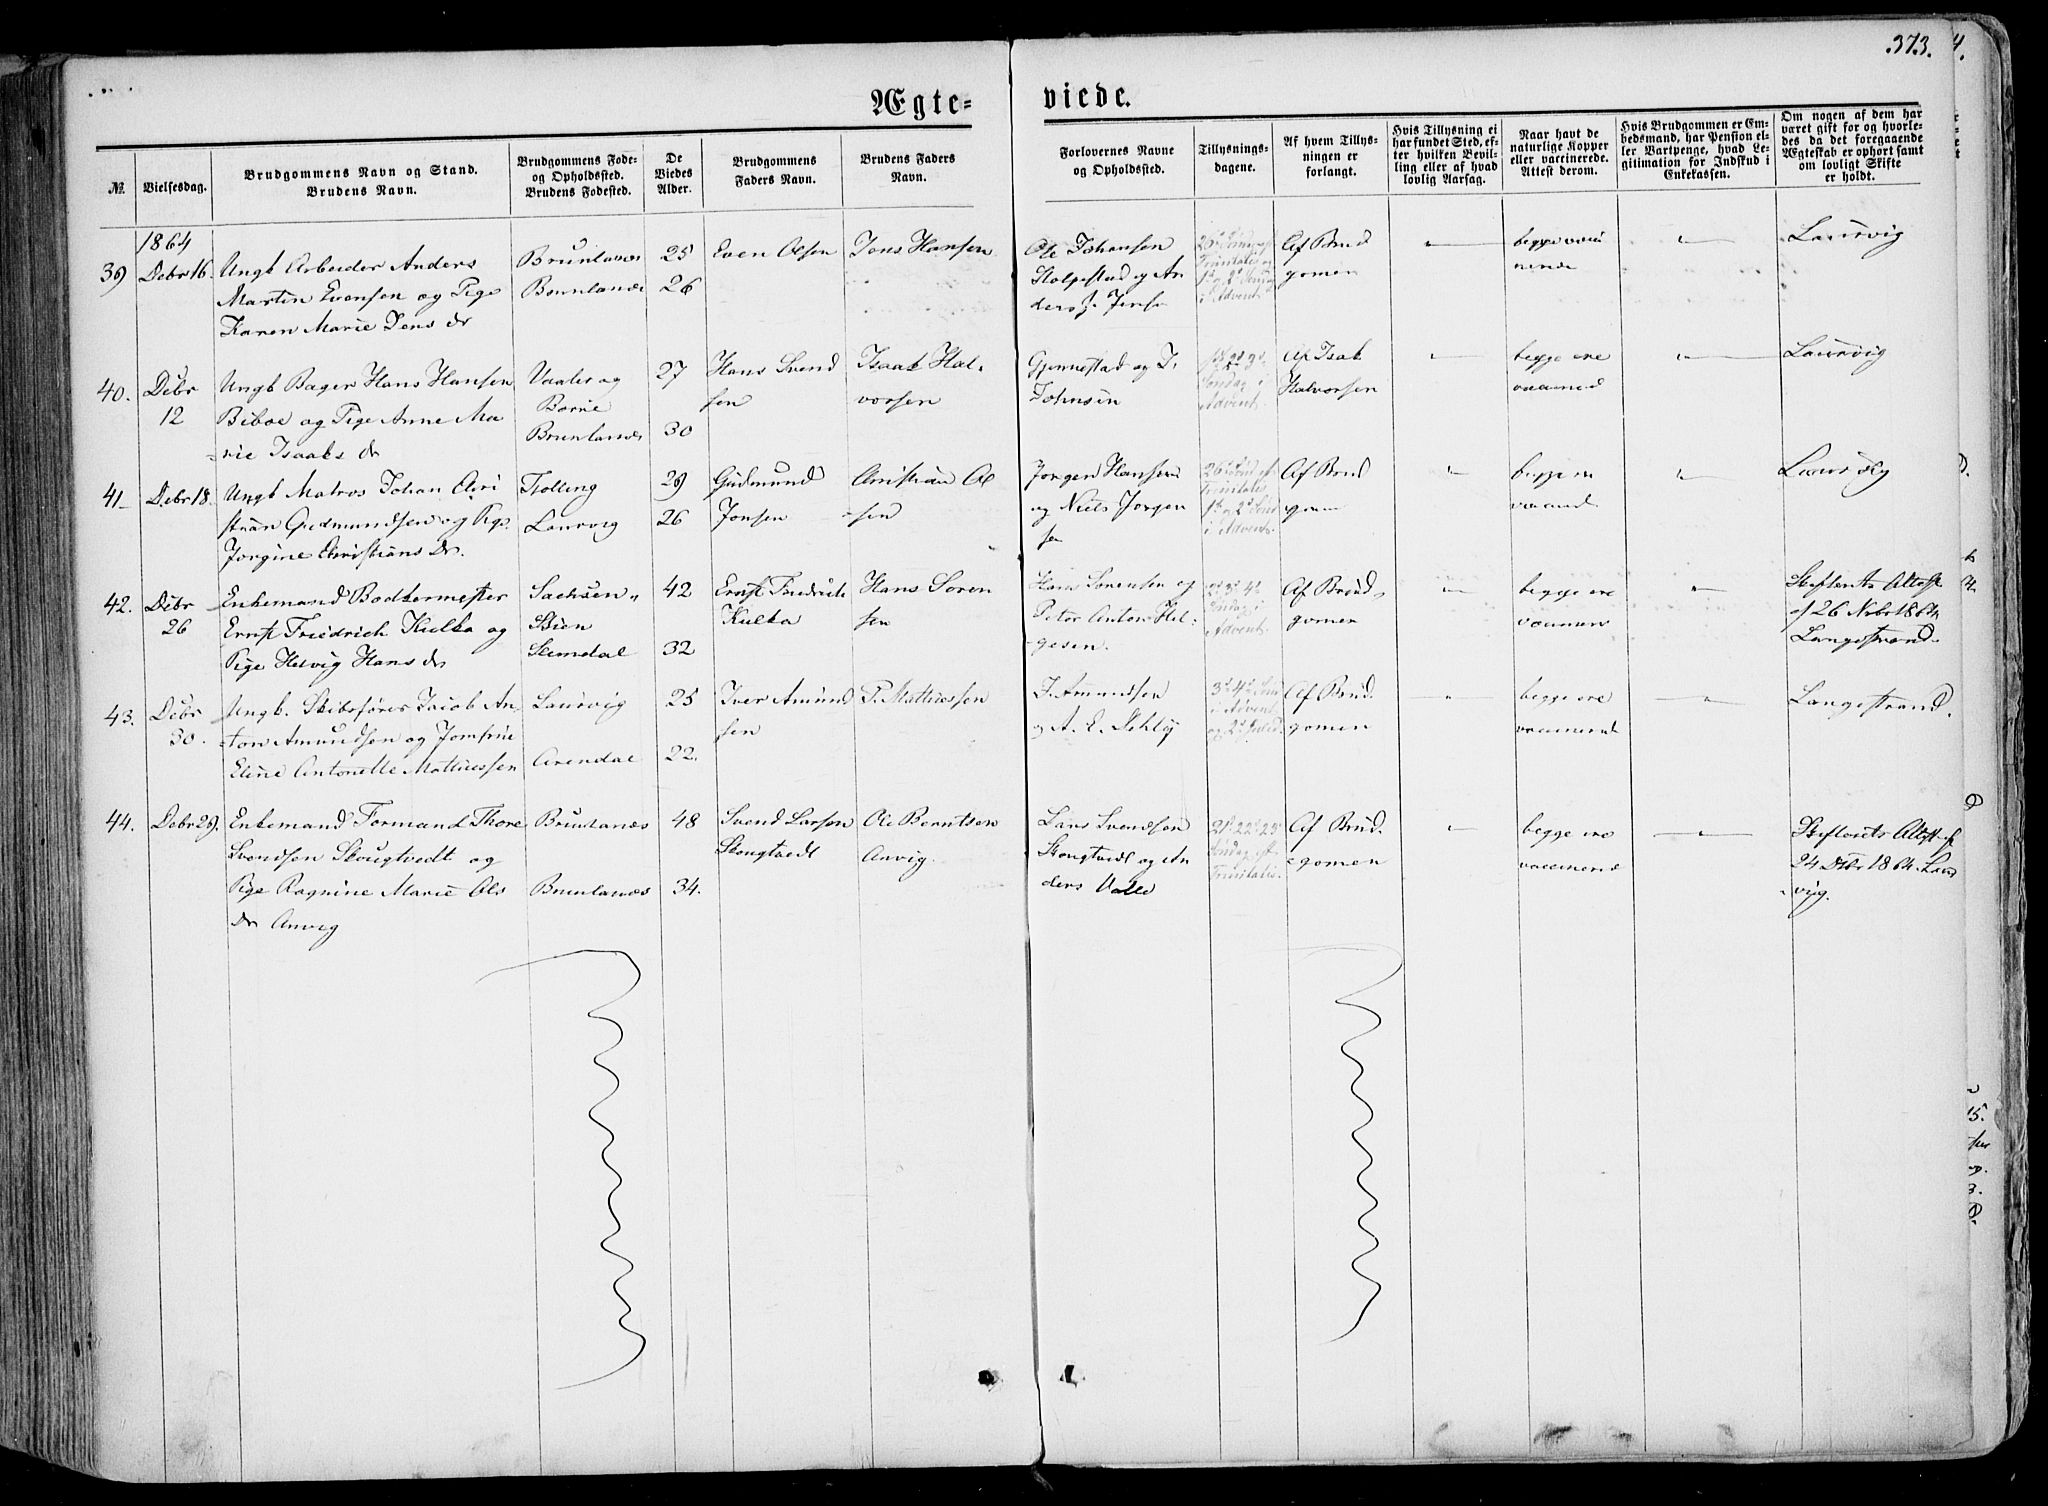 373.
Ægte-
viede.
№
Vielsesdag.
Brudgommens Navn og Stand.
Brudens Navn.
Brudgommens Føde-
og Opholdssted.
Brudens Fødested.
De
Viedes
Alder.
Brudgommens
Faders Navn.
Brudens Faders
Navn.
Forlovernes Navne
og Opholdssted.
Tillysnings-
dagene.
Af hvem Tillys-
ningen er
forlangt.
Hvis Tillysning ei
har fundet Sted, ef-
ter hvilken Bevil-
ling eller af hvad
lovlig Aarsag.
Naar havt de
naturlige Kopper
eller vaccinerede.
Attest derom.
Hvis Brudgommen er Em-
bedsmand, har Pension el-
ler Vartpenge, hvad Le-
gitimation for Indskud i
Enkekassen.
Om nogen af dem har
været gift før og hvorle-
des da det foregaaende
Ægteskab er ophørt samt
om lovligt Skifte
er holdt.
1864
39
Debr 16.
Ungk Arbeider Anders
Martin Evensen og Pige
Karen Marie Jens dr
Brunlanæs
Brunlanæs
25
26
Even Olsen
Jens Hansen
Ole Johansen
Stolpestad og An
ders J. Jensen
26d Sønd. ef
Trinitatis og
1ste og 2d Sønd.
i Advent
Af Brud
gomen
begge vacci
nerede
Laurvig
40.
Debr
12
Ungk Bager Hans Hansen
Biboe og Pige Anne Ma
rie Isaaks dr
Vaaler og
Borre
Brunlanæs
27
30
Hans Svend
sen
Isaak Hal-
vorsen
Gjennestad og I.
Johnsen
Søndag i
Advent.
Af Isak
Halvorsen
begge ere
vaccined
Laurvig
41
Debr 18.
Ungk Matros Johan Chri
stian Gudmundsen og Pige
Jorgine Christians Dr.
Tjølling
Laurvig
29
26
Gudmund
Jonsen
Christian Ol
sen
Jørgen Hansen
og Niels Jørgen
sen
26d Sønd ef
Trinitatis
1ste og 2d Sønd
i Advent.
Af Brud
gom
begge ere
vaccined
Laurvig
42.
Debr
26
Enkemand Bødkermester
Ernst Friedrich Kulka og
Pige Helvig Hans dr
Sachsen
Skien
Slemdal
42
32
Ernst Friedrich
Kulka
Hans Søren
sen
Hans Sørensen og
Peter Anton Hel-
gesen.
2d 3d 4d
Søndag i
Advent.
Af Brud-
gomen
begge ere
vaccinere
Skifterets Attest
af 26 Nvbr 1864
Langestrand.
43.
Debr
30.
Ungk. Skibsfører Jacob An-
ton Amundsen og Jomfrue
Eline Antonette Mathiessen
Laurvig
Arendal
25
22.
Iver Amund
sen
P. Mathiessen
I. Amundsen
og A. E. Dehly
3d 4d Sønd
i Advent
og 2d Juled.
Af Brud
gomen
begge ere
vaccinered
Langestrand.
44.
Debr 29.
Enkemand Formand Thore
Svendsen Skougtvedt og
Pige Ragnine Marie Ols
Dr Anvig
Brunlanæs
Brunlanæs
48
34.
Svend Larsen
Skougtvedt
Ole Berntsen
Anvig.
Lars Svendsen
Skougtvedt og An
ders Valle
21d 22d 23d
Søndag ef.
Trinitatis.
Af Brud-
gomen
begge ere
vaccinered
Skifterets Attest af
24 Debr 1864. Laur
vig.